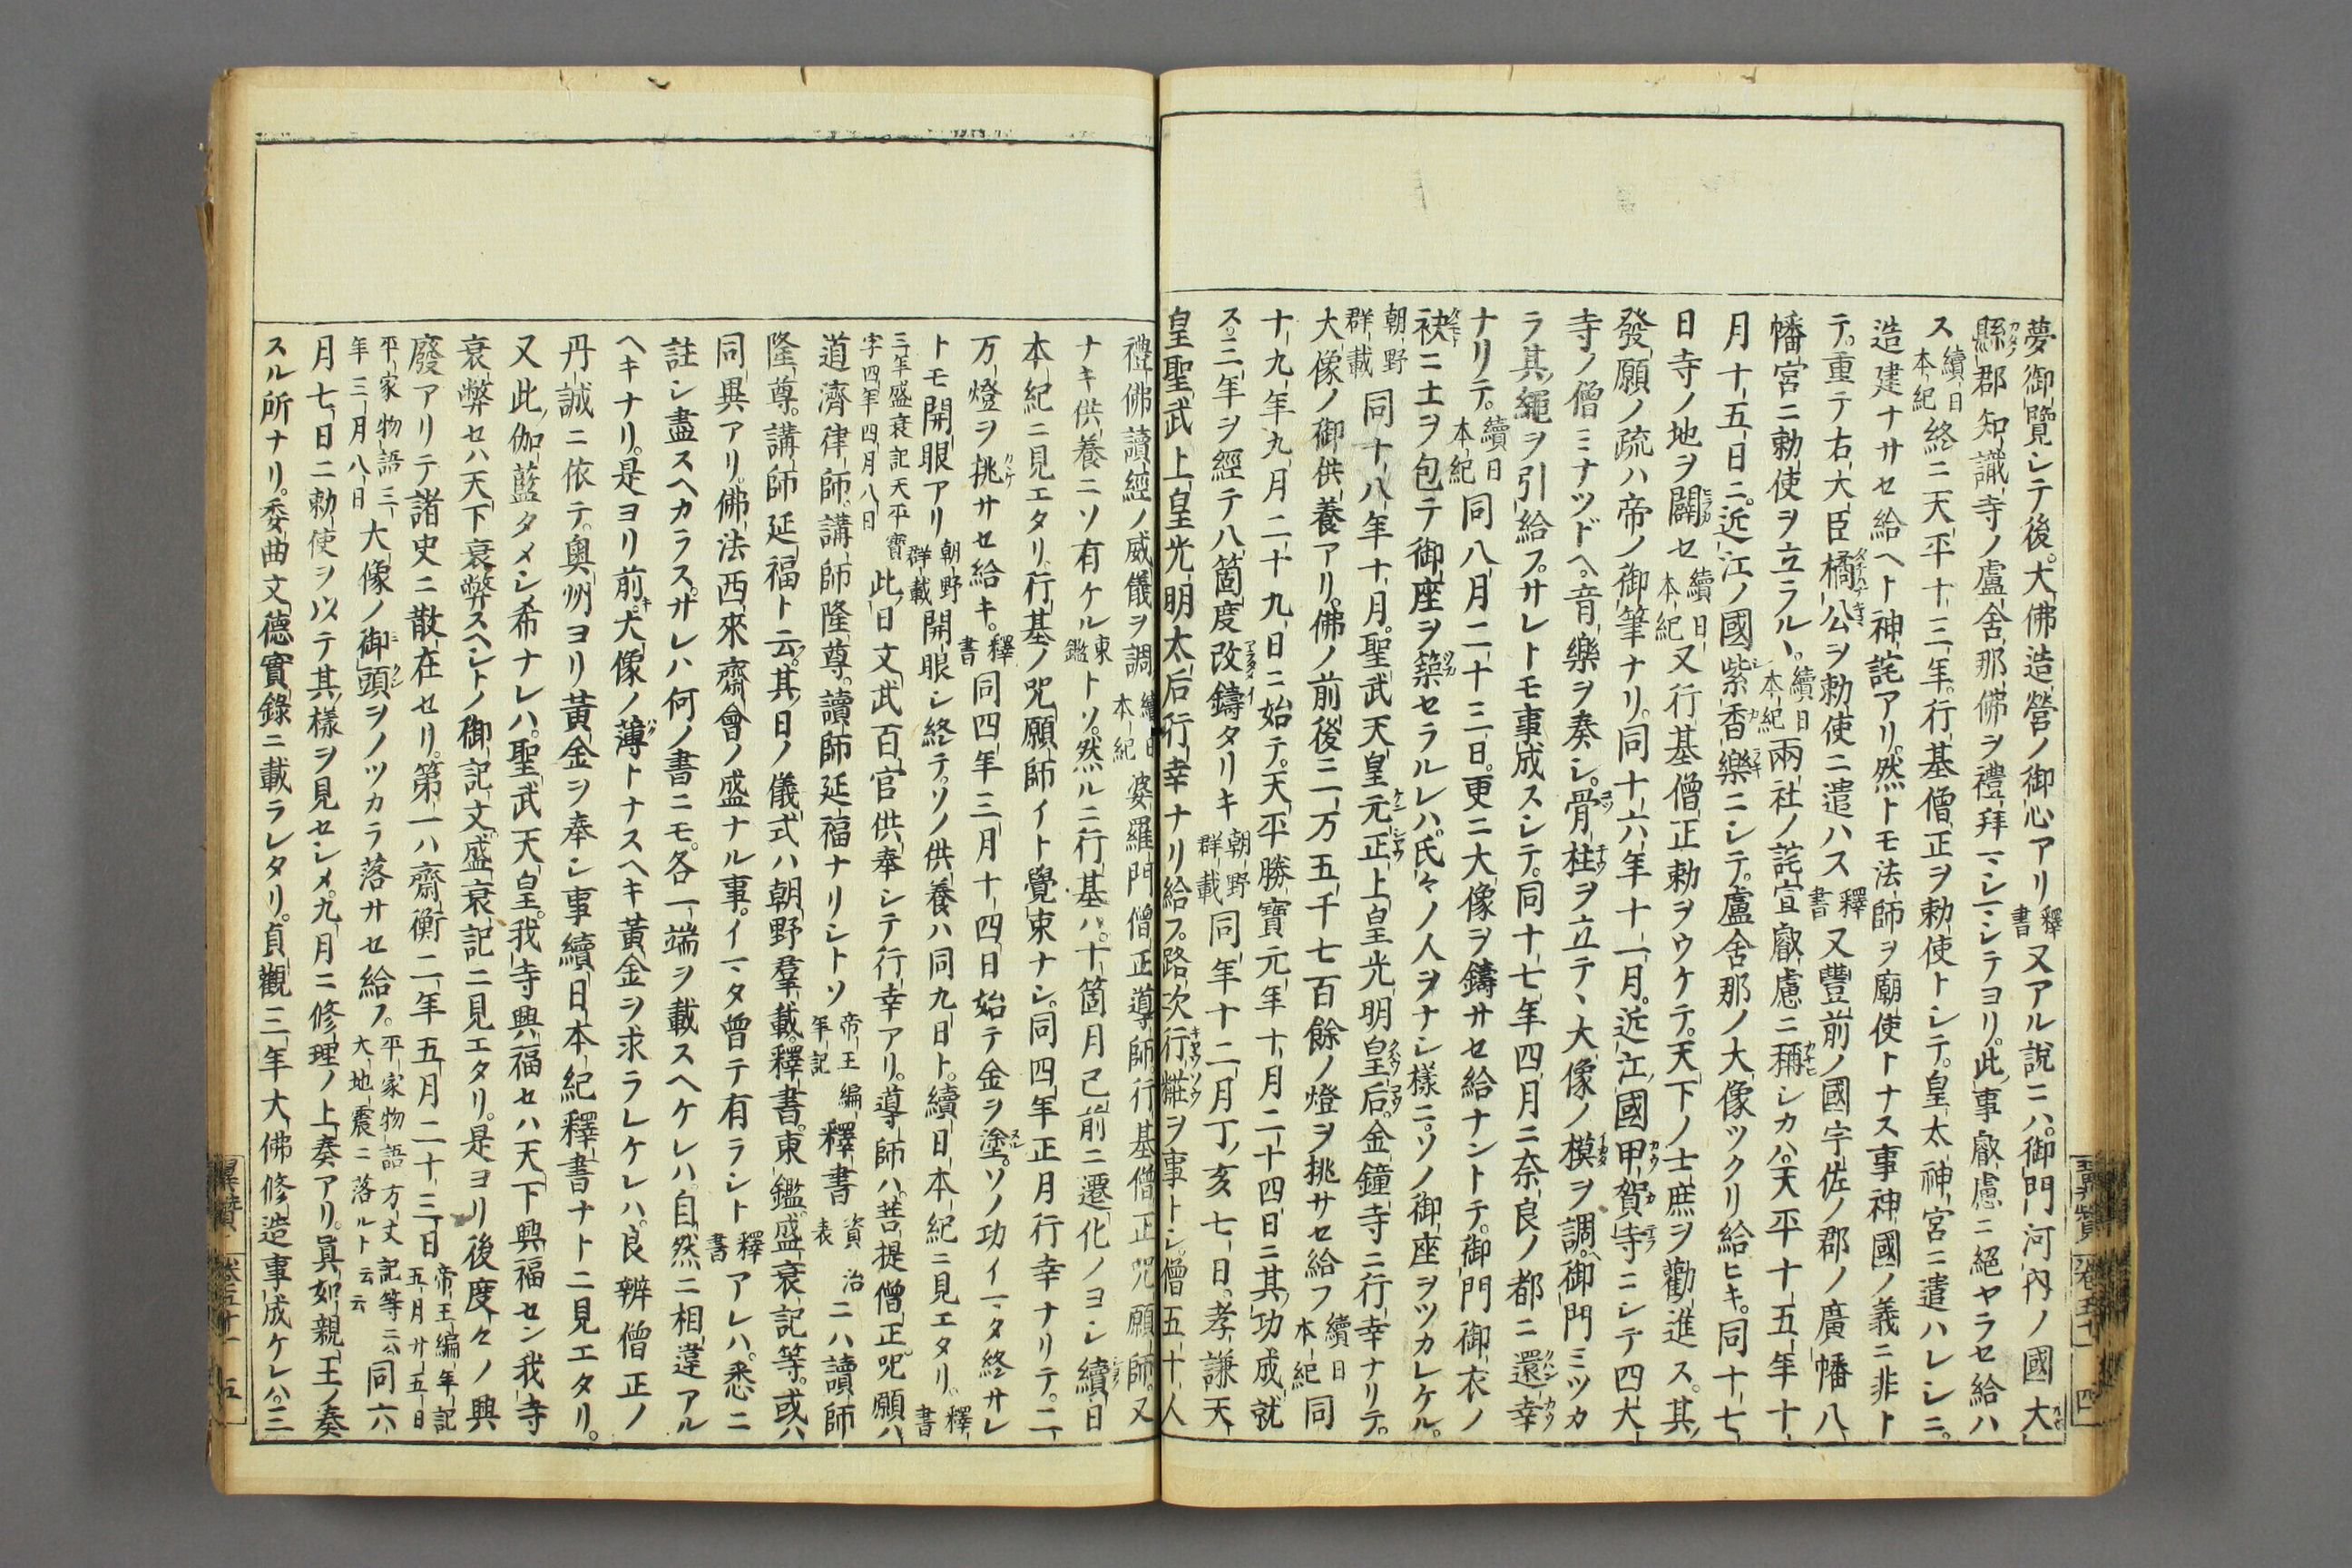 夢御覽シテ後。大佛造營ノ御心アリ釋書又アル說ニハ。御門河內ノ國大
縣郡知識寺ノ盧舍那佛ヲ禮拜マシマシテヨリ。此事叡慮ニ絕ヤラセ給ハ
ス續日本紀終ニ天平十三年。行基僧正ヲ勅使トシテ。皇太神宮ニ遣ハレシニ。
造建ナサセ給ヘト神詫アリ。然トモ法師ヲ廟使トナス事神國ノ義ニ非ト
テ。重テ右大臣橘公ヲ勅使ニ遣ハス釋書又豐前ノ國宇佐ノ郡ノ廣幡八
幡宮ニ勅使ヲ立ラル、續日本紀兩社ノ詫宣叡慮ニ稱シカハ。天平十五年十
月十五日ニ。近江ノ國紫香樂ニシテ。盧舍那ノ大像ツクリ給ヒキ。同十七
日寺ノ地ヲ闢セ續日本紀又行基僧正勅ヲウケテ。天下ノ士庶ヲ勸進ス。其
發願ノ疏ハ帝ノ御筆ナリ。同十六年十一月。近江國甲賀寺ニシテ四大
寺ノ僧ミナツドヘ。音樂ヲ奏シ。骨柱ヲ立テ、大像ノ模ヲ調。御門ミツカ
ラ其繩ヲ引給フ。サレトモ事成スシテ。同十七年四月ニ奈良ノ都ニ還幸
ナリテ。續日本紀同八月二十三日。更ニ大像ヲ鑄サセ給ナントテ。御門御衣ノ
袂ニ土ヲ包テ御座ヲ築セラルレハ。氏々ノ人ヲナシ樣ニ。ソノ御座ヲツカレケル。
朝野群載同十八年十月。聖武天皇元正上皇光明皇后。金鐘寺ニ行幸ナリテ。
大像ノ御供養アリ。佛ノ前後ニ一万五千七百餘ノ燈ヲ挑サセ給フ續日本紀同
十九年九月二十九日ニ始テ。天平勝寶元年十月二十四日ニ其功成就
ス。三年ヲ經テ八箇度改鑄タリキ朝野群載同年十二月丁亥七日。孝謙天
皇聖武上皇光明太后行幸ナリ給フ。路次行粧ヲ事トシ。僧五十人
禮佛讀經ノ威儀ヲ調續日本紀婆羅門僧正導師行基僧正咒願師。又
ナキ供養ニソ有ケル東鑑トソ。然ルニ行基ハ。十箇月已前ニ遷化ノヨシ續日
本紀ニ見エタリ。行基ノ咒願師イト覺束ナシ。同四年正月行幸ナリテ。二
万燈ヲ挑サセ給キ。釋書同四年三月十四日始テ金ヲ塗。ソノ功イマタ終サレ
トモ開眼アリ朝野群載開眼シ終テ。ソノ供養ハ同九日ト。續日本紀ニ見エタリ。釋書
三年盛衰記天平寶字四年四月八日此日文武百官供奉シテ行幸アリ。導師ハ。菩提僧正。咒願ハ
道濟律師。講師隆尊。讀師延福ナリシトソ帝王編年記釋書資治表ニハ讀師
隆尊。講師延福ト云。其日ノ儀式ハ朝野羣載。釋書。東鑑。盛衰記等。或ハ
同異アリ。佛法西來齋會ノ盛ナル事。イマタ曾テ有ラシト釋書アレハ。悉ニ
註シ盡スヘカラス。サレハ何ノ書ニモ。各一端ヲ載スヘケレハ自然ニ相違アル
ヘキナリ。是ヨリ前。大像ノ薄トナスヘキ黃金ヲ求ラレケレハ。良辨僧正ノ
丹誠ニ依テ。奧州ヨリ黃金ヲ奉シ事續日本紀釋書ナトニ見エタリ。
又此伽藍タメシ希ナレハ。聖武天皇。我寺興福セハ天下興福セン我寺
衰弊セハ天下衰弊スヘシトノ御記文盛衰記ニ見エタリ。是ヨリ後度々ノ興
廢アリテ諸史ニ散在セリ。第一ハ齋衡二年五月二十三日帝王編年記五月廿五日
平家物語三年三月八日大像ノ御頭ヲノツカラ落サセ給フ。平家物語方丈記等ニハ大地震ニ落ルト云云同六
月七日ニ勅使ヲ以テ其樣ヲ見セシメ。九月ニ修理ノ上奏アリ。眞如親王ノ奏
スル所ナリ。委曲文德實錄ニ載ラレタリ。貞觀三年大佛修造事成ケレハ。三